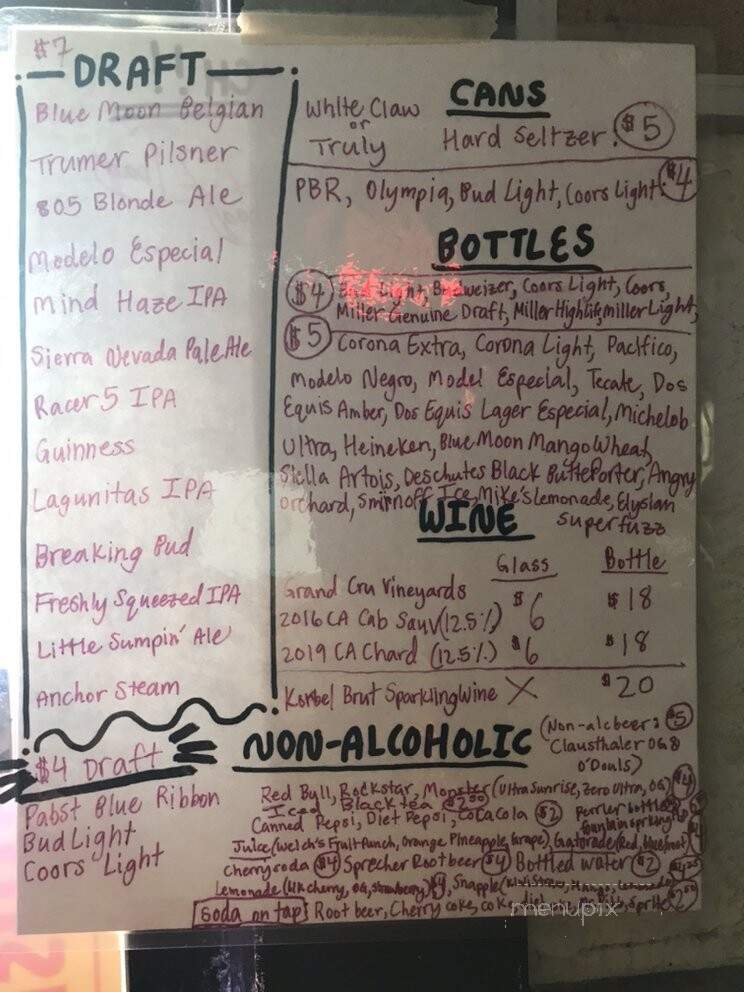 $7
DRAFT
Blue Moon Belgian
Trumer Pilsner
805 Blonde Ale
Modelo Especial
Mind Haze IPA
Sierra Nevada Pale Ale
Racer 5 IPA
Guinness
Lagunitas IPA
Breaking Bud
Freshly Squeezed IPA
Little Sumpin' Ale
Anchor Steam
$4 Draft
Pabst Blue Ribbon
Bud Light
Coors Light
CANS
White Claw
or
Truly
Hard Seltzer: $5
PBR, Olympia, Bud Light, Coors Light: $4
BOTTLES
$4 Bud Light, Budweizer, Coors Light, Coors,
Miller Genuine Draft, Miller High Life, Miller Light,
$5 Corona Extra, Corona Light, Pacifico,
Modelo Negro, Model Especial, Tecate, Dos
Equis Amber, Dos Equis Lager Especial, Michelob
Ultra, Heineken, Blue Moon Mango Wheat,
Stella Artois, Deschutes Black Butte Porter, Angry
orchard, Smirnoff Ice, Mike's Lemonade, Elysian
Superfuzz
WINE
Glass Bottle
Grand Cru Vineyards
2016 CA Cab Sauv (12.5%) $6 $18
2019 CA Chard (12.5%) $6 $18
Korbel Brut Sparkling Wine X $20
NON-ALCOHOLIC
(Non-alc beer: $5
Clausthaler OG &
O'Douls)
Red Bull, Rockstar, Monster (Ultra Sunrise, Zero Ultra, OG) $4
Iced Black tea $2.00
Canned Pepsi, Diet Pepsi, Coca Cola $2 Perrier bottle
Juice (Welch's Fruit Punch, Orange Pineapple, Grape), Gatorade (Red, blue
Cherry soda $4 Sprecher Root beer $4 Bottled water $2
Lemonade cherry, OG, strawberry) $4, Snapple
soda on tap: Root beer, Cherry coke, coke, diet Sprite
menupix